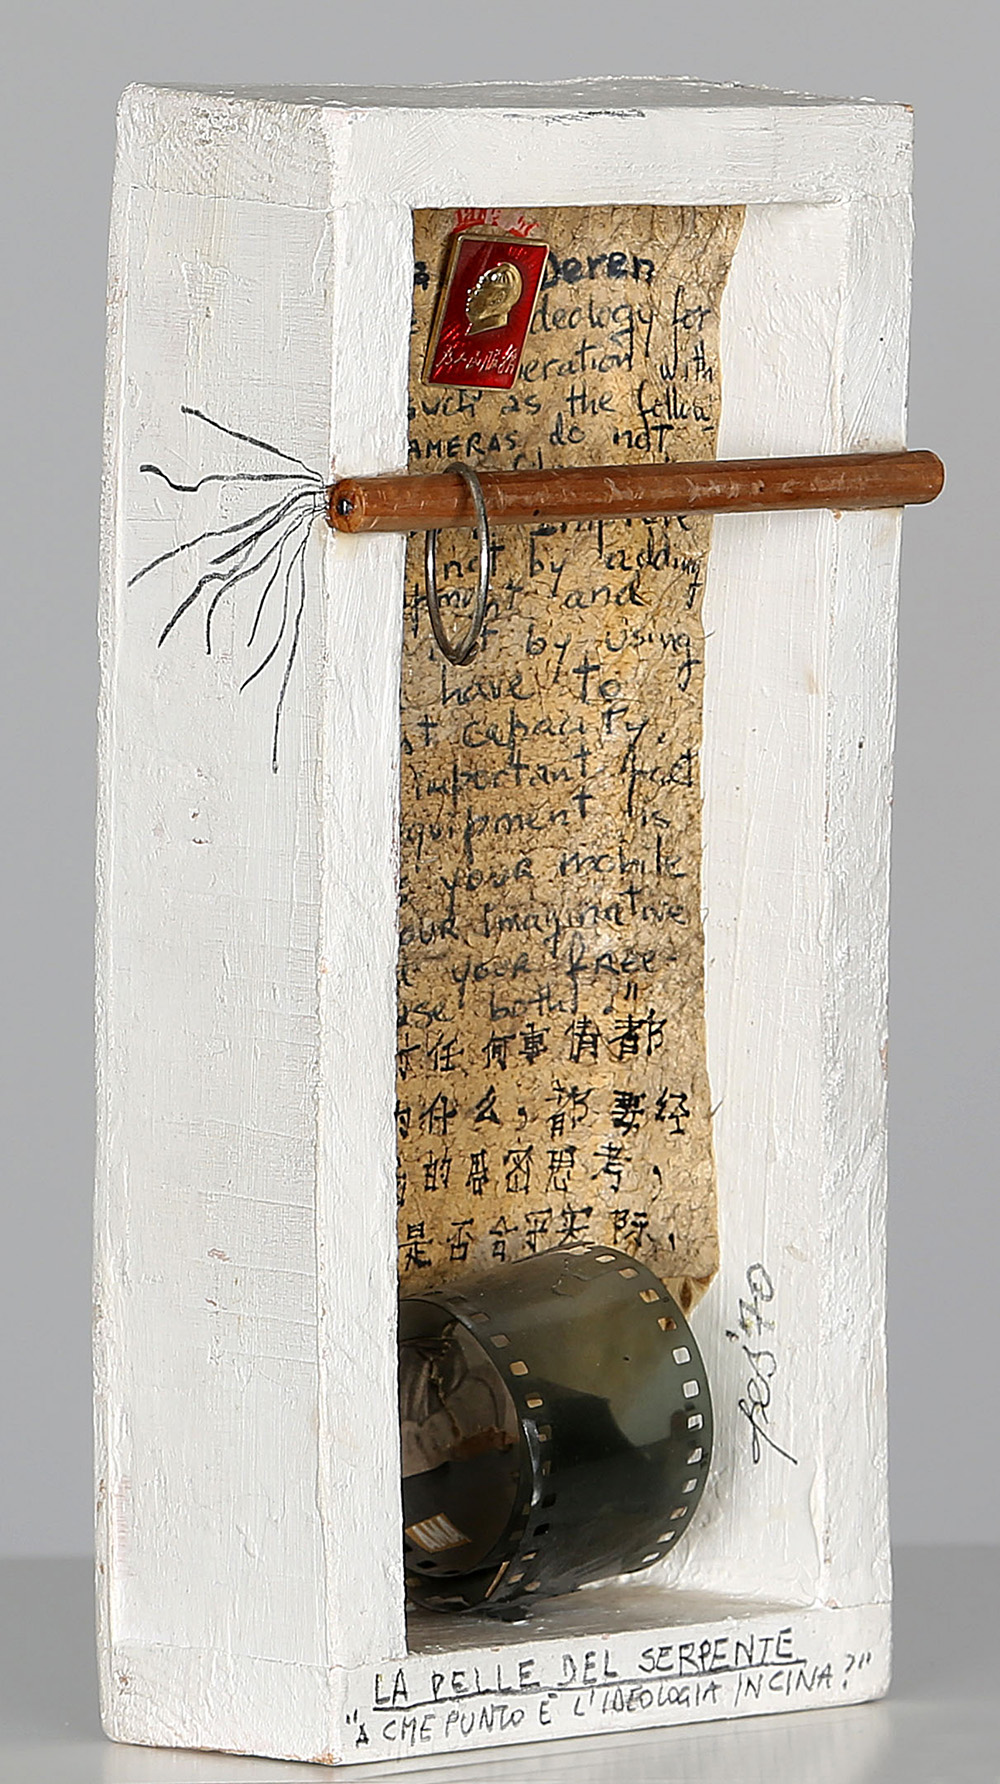 为人民服务
Deren
deology for
eration with
such as the follow-
AMERAS do not
not by adding
and
by using
have to
capacity.
important part
quipment is
your mobile
our imaginative
your free-
use both."
任何事情都
为什么，都要经
的周密思考，
是否合乎实际，
'70
LA PELLE DEL SERPENTE
"A CHE PUNTO È L'IDEOLOGIA IN CINA?"